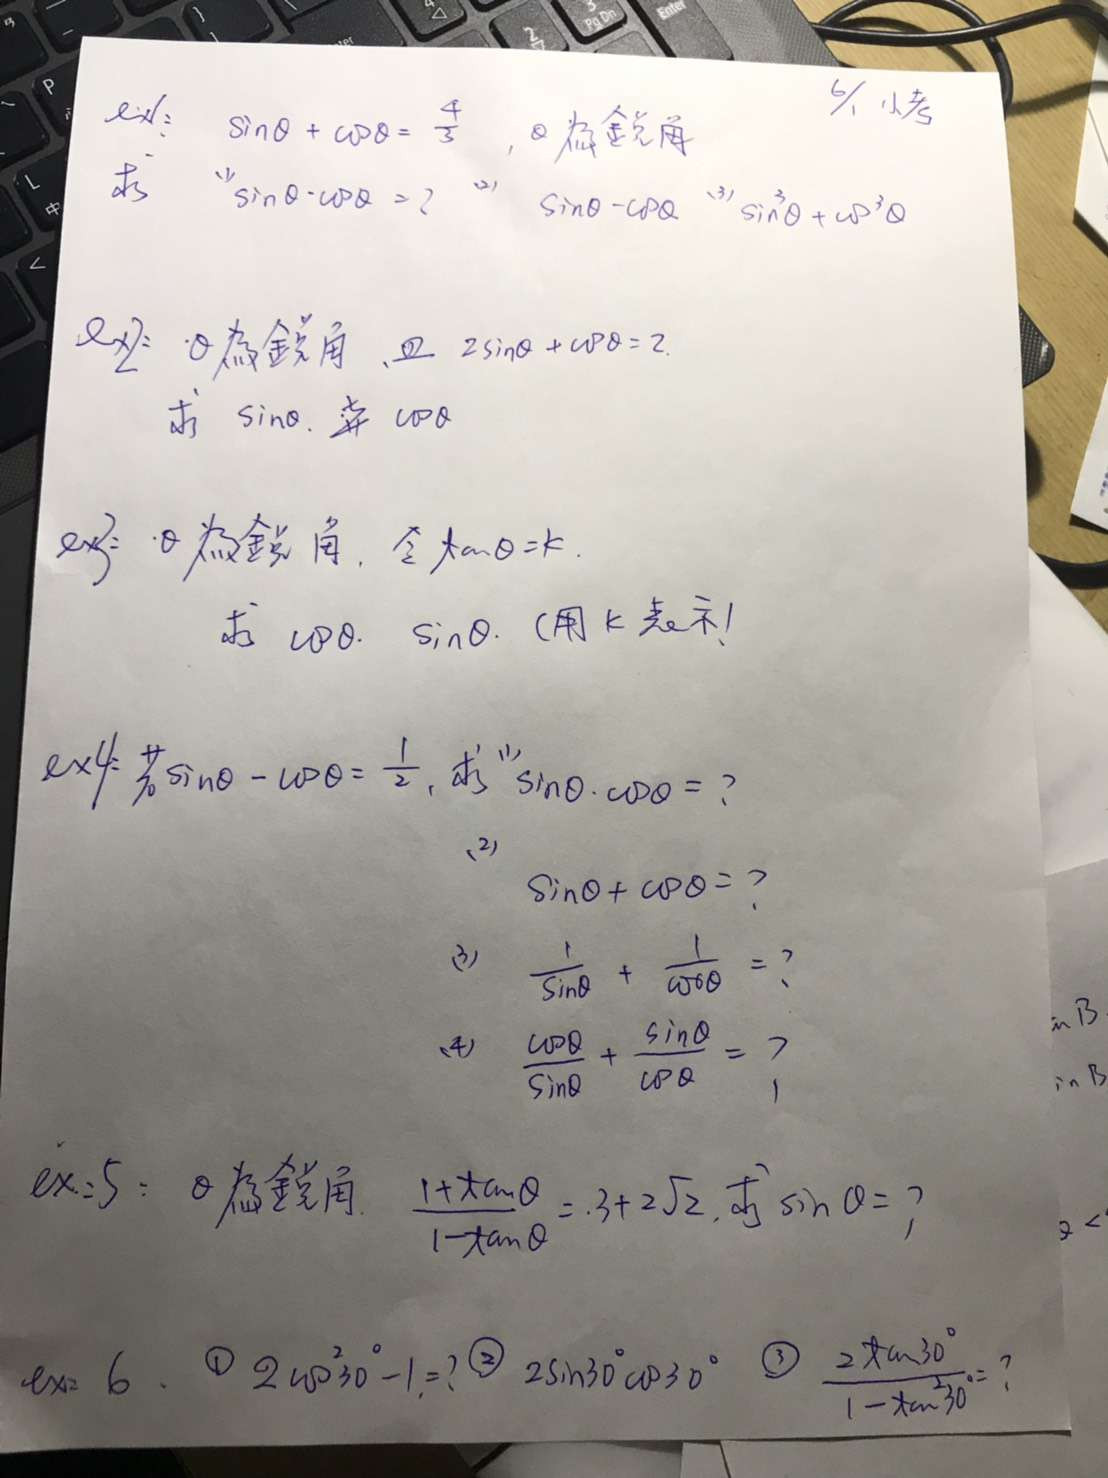 6/1 小考
ex1: sinθ + cosθ = 4/3 , θ為銳角
求 (1) sinθ·cosθ = ? (2) sinθ - cosθ (3) sin³θ + cos³θ
ex2: θ為銳角、且 2sinθ + cosθ = 2.
求 sinθ. cosθ
ex3: θ為銳角. 令tanθ=k.
求 cosθ. sinθ. (用k表示!
ex4: 若sinθ - cosθ = 1/2, 求 (1) sinθ·cosθ = ?
(2)
sinθ + cosθ = ?
(3) 1/sinθ + 1/cosθ = ?
(4) cosθ/sinθ + sinθ/cosθ = ?
ex:5: θ為銳角. (1+tanθ)/(1-tanθ) = 3+2√2, 求 sinθ = ?
ex: 6. ① 2cos²30°-1=? ② 2sin30°cos30° ③ 2tan30°/(1-tan²30°)=?
Enter
3
Pg Dn
P
L
中
n B
in B